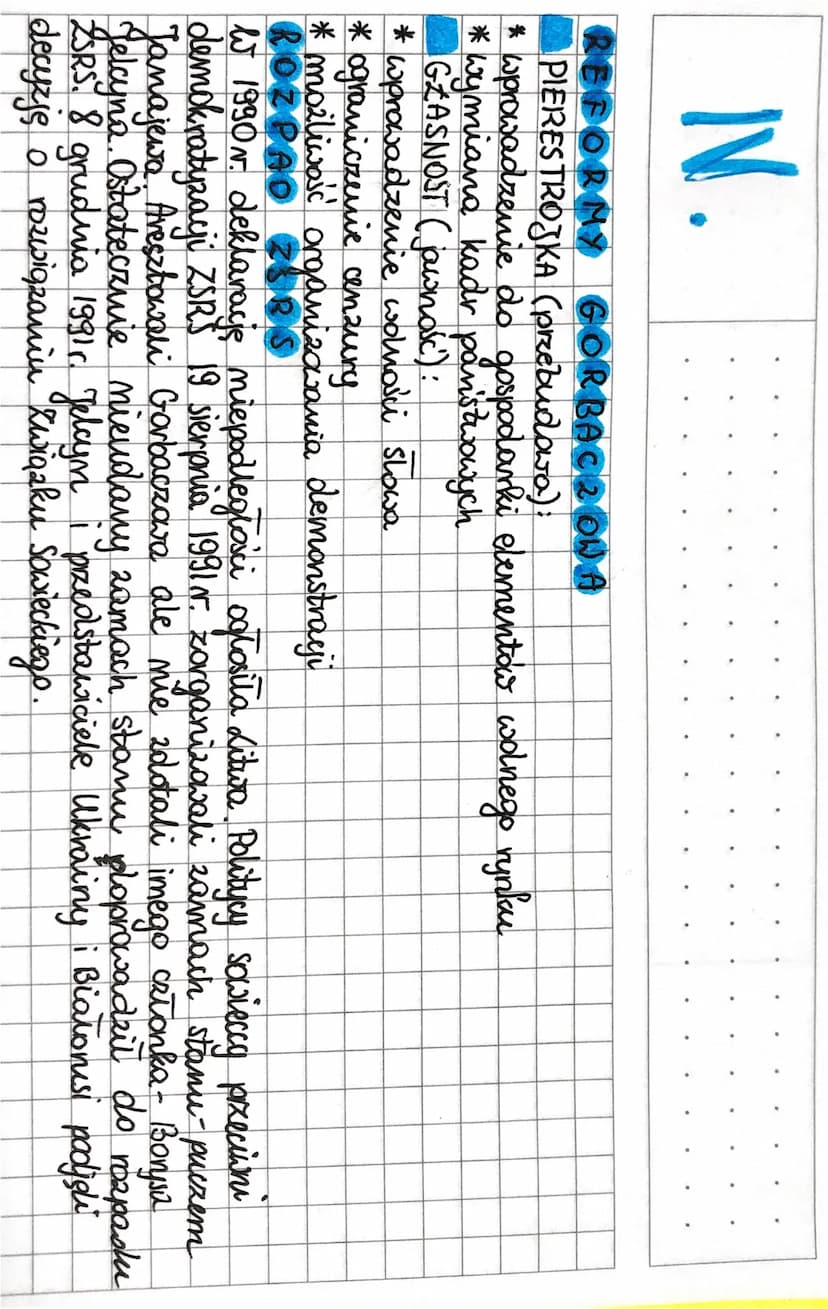 IV.
REFORMY GORBACZOWA
PIERESTROJKA (przebudowa):
* wprowadzenie do gospodarki elementów wolnego rynku
* wymiana kadr państwowych
GŁASNOST (jawność):
* wprowadzenie wolności słowa
* ograniczenie cenzury
* możliwość organizowania demonstracji
ROZPAD ZSRS
W 1990 r. deklarację niepodległości ogłosiła Litwa. Politycy sowieccy przeciwni
demokratyzacji ZSRS 19 sierpnia 1991 r. zorganizowali zamach stanu - puczem
Janajewa. Aresztowali Gorbaczowa ale nie zdołali innego członka - Borysa
Jelcyna. Ostatecznie nieudany zamach stanu doprowadził do rozpadu
ZSRS. 8 grudnia 1991 r. Jelcyn i przedstawiciele Ukrainy i Białorusi podjęli
decyzję o rozwiązaniu Związku Sowieckiego.